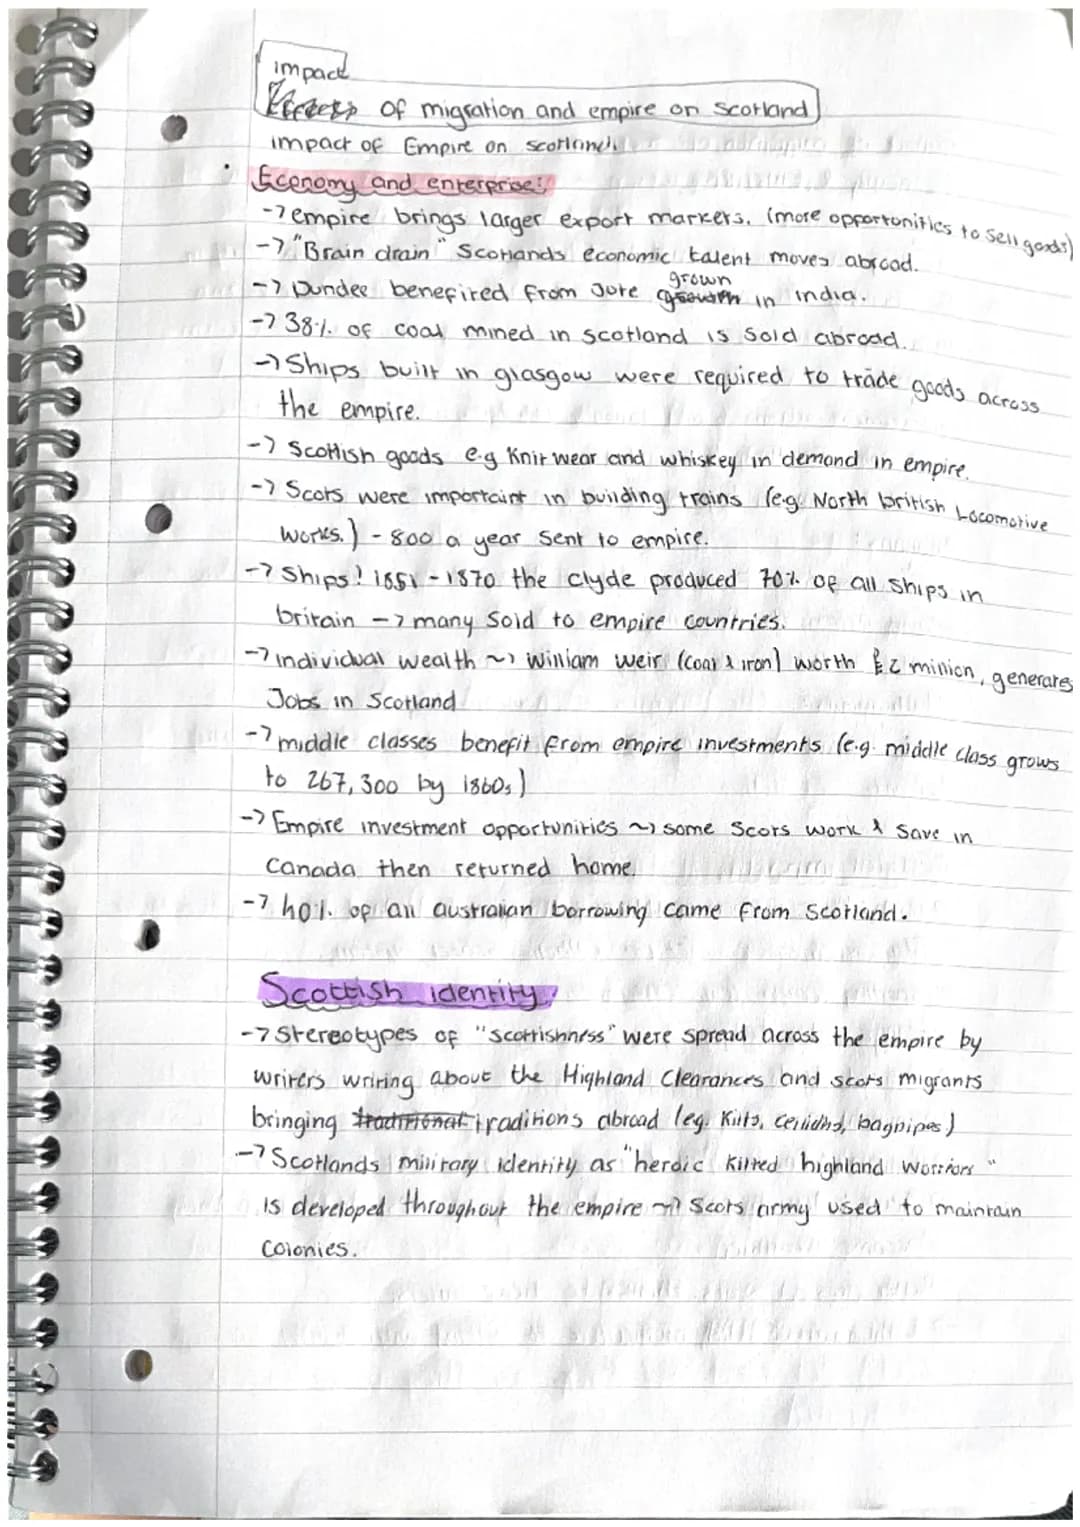 impact
Effects of migration and empire on Scotland
impact of Empire on scotland.
Economy and enterprise:
-> empire brings larger export markets. (more opportonities to sell goods)
-> "Brain drain" Scotlands economic talent moves abroad.
grown
-> Dundee benefited from Jute growth in india.
-> 38% of coal mined in scotland is sold abroad.
-> Ships built in glasgow were required to trade goods across
the empire.
-> Scottish goods e.g Knitwear and whiskey in demand in empire.
-> Scots were importaint in building trains (e.g. North british Locomotive
works.) - 800 a year sent to empire.
-> Ships! 1851 - 1870 the clyde produced 70% of all ships in
britain -> many sold to empire countries.
-> individual wealth ~> William weir (coal & iron) worth £2 million, generates
Jobs in Scotland
-> middle classes benefit from empire investments (e.g. middle class grows
to 267,300 by 1860s)
-> Empire investment opportunities ~> some Scots work & save in
Canada then returned home.
-> 40% of all australian borrowing came from Scotland.
Scottish identity:
-> Stereotypes of "scottishness" were spread across the empire by
writers writing about the Highland Clearances and scots migrants
bringing traditional traditions abroad (eg. Kilts, ceilidhs, bagpipes)
-> Scotlands military identity as "heroic kilted highland worriors"
is developed throughout the empire ~> Scots army used to maintain
colonies.